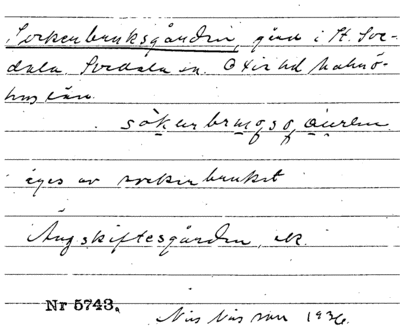 Sockerbruksgården, gård i St. Sve-
dala. Svedala sn. Oxie hd Malmö-
hus län.
äges av sockerbruket
Ängskiftesgården, ek.
Nr 5743.
Nils Nilsson 1936.